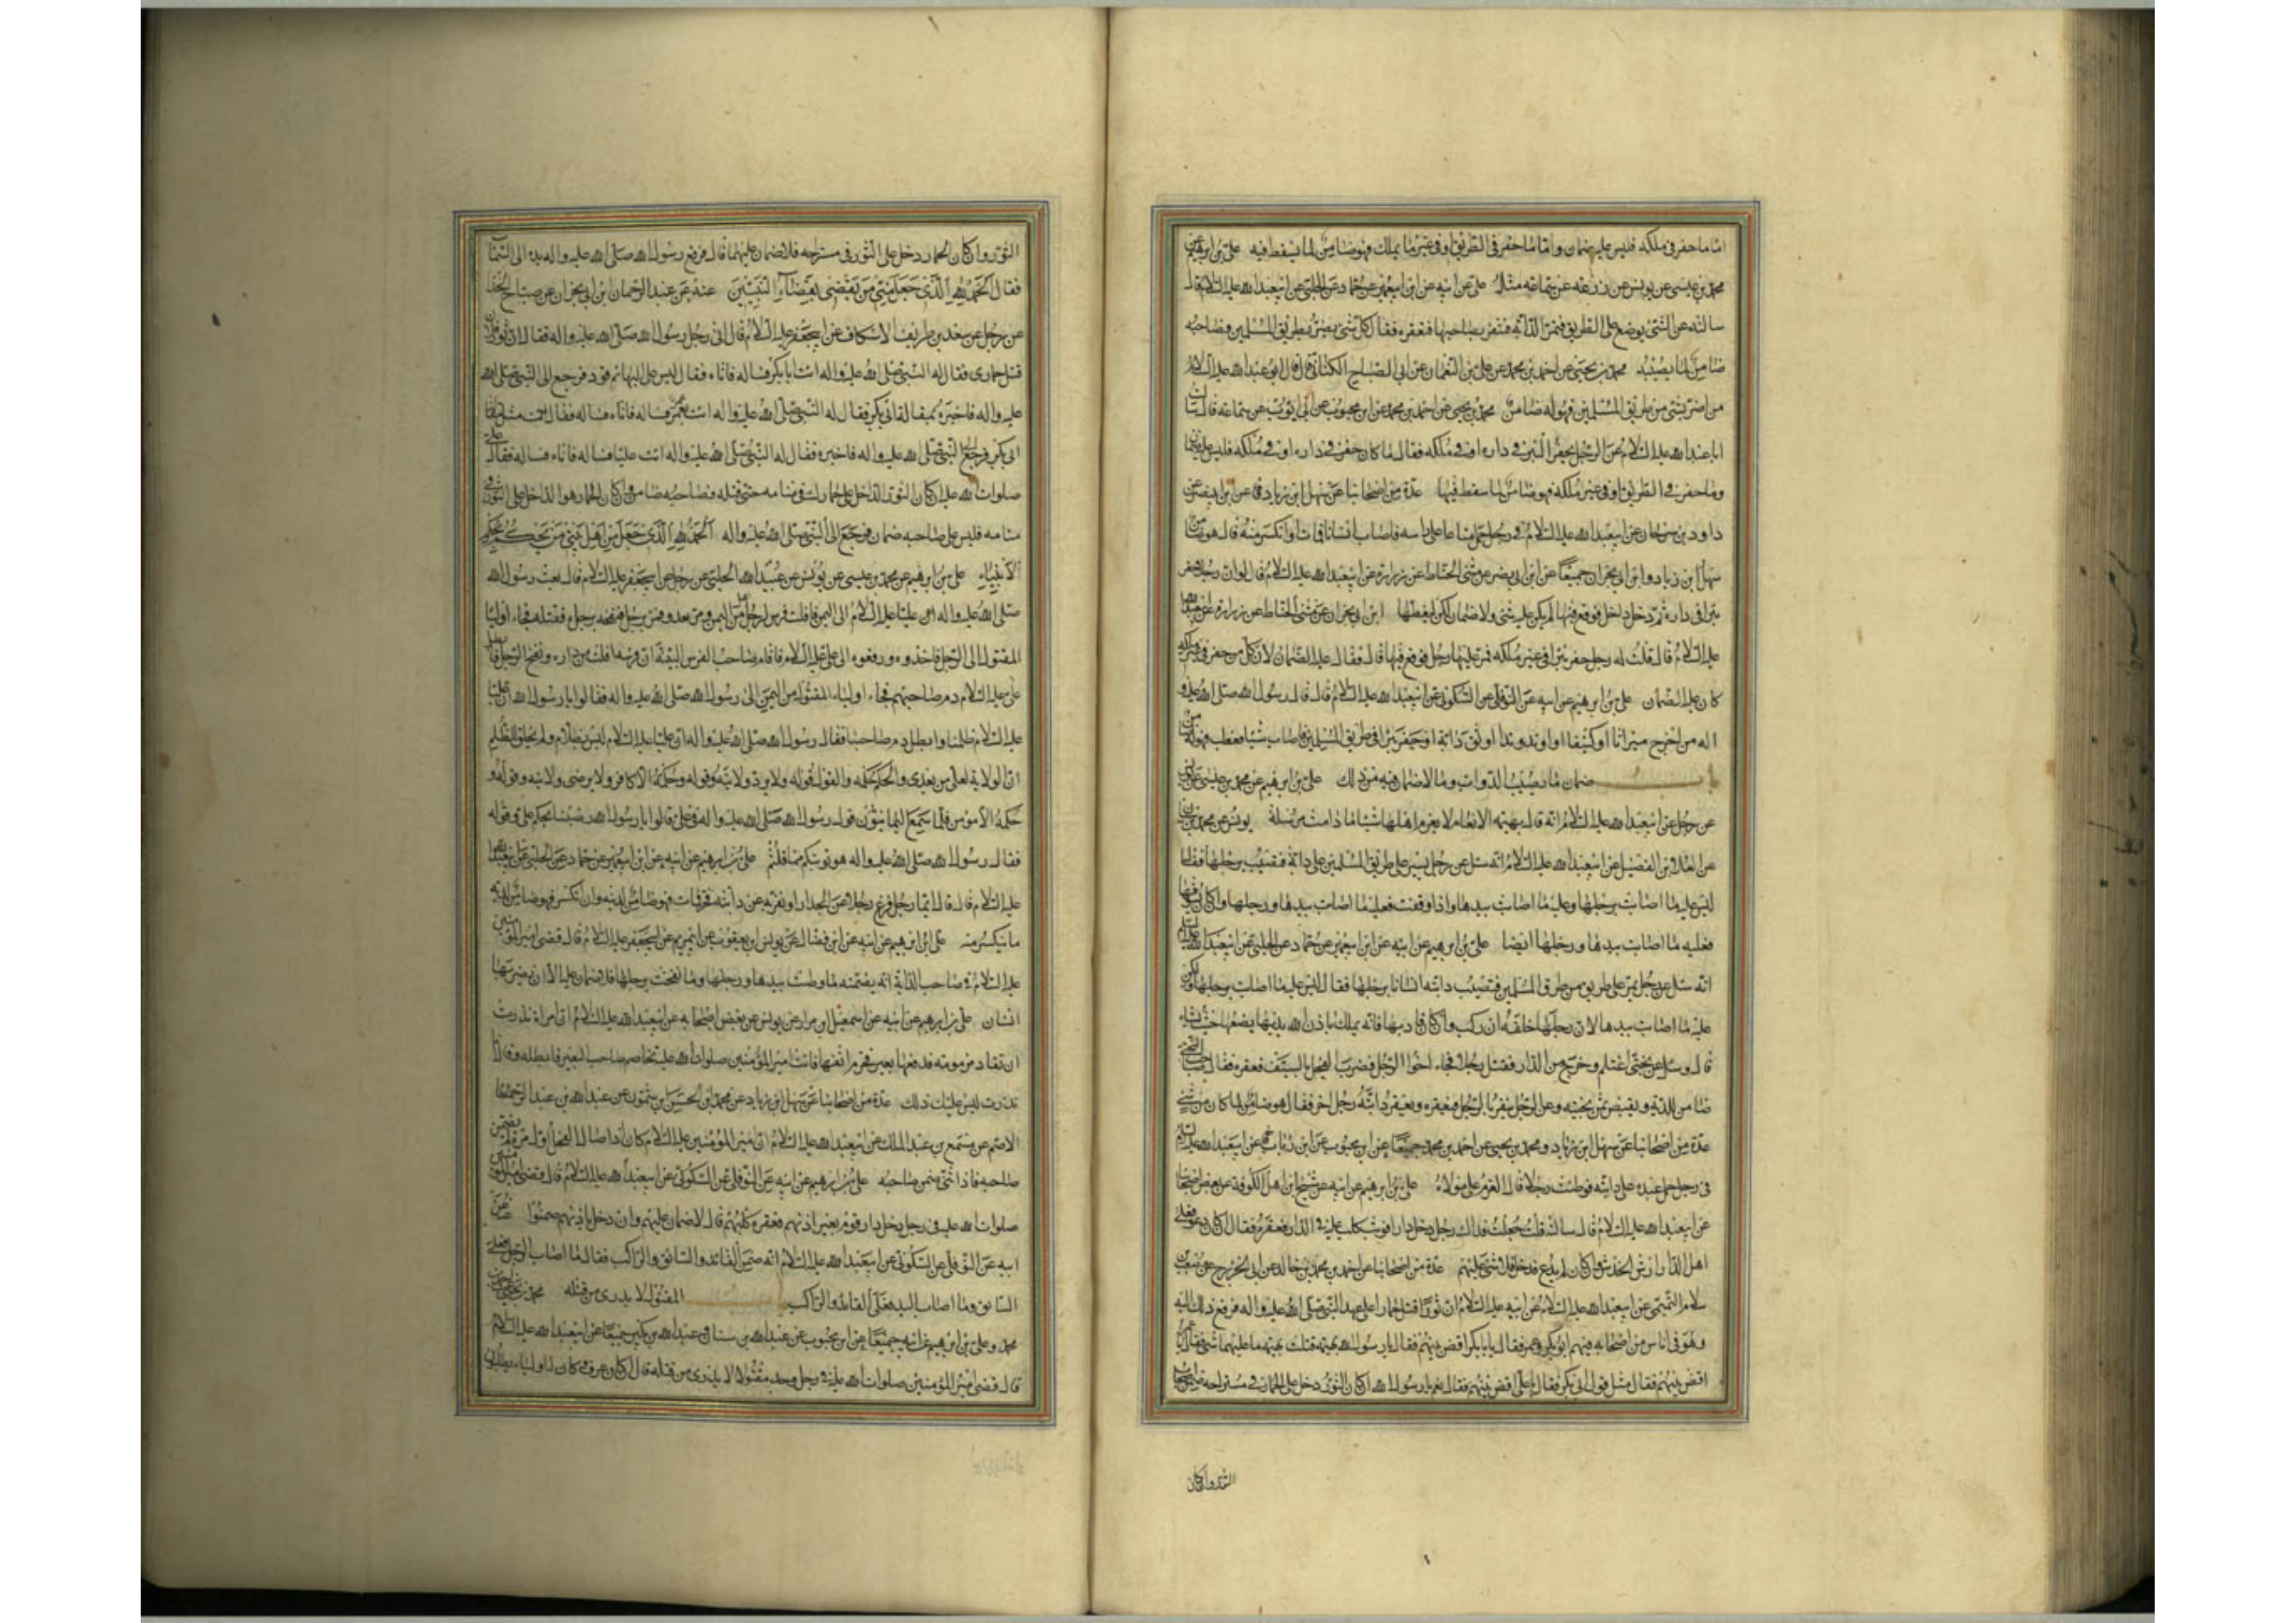 اما ما حفر فى ملكه فليس عليه ضمان واما ما حفر فى الطريق او فى غير ما يملك فهو ضامن لما يسقط فيه على بن ابرهيم عن
محمد بن عيسى عن يونس عن زرعه عن سماعه مثله على عن ابيه عن ابن ابيعمير عن حماد عن الحلبى عن ابيعبد الله عليه السلام قال
سالته عن الشئ يوضع على الطريق فتمر الدابة فتنفر بصاحبها فتعقره فقال كل شئ يضر بطريق المسلمين فصاحبه
ضامن لما يصيبه محمد بن يحيى عن احمد بن محمد عن على بن النعمان عن ابى الصباح الكنانى قال قال ابو عبد الله عليه السلام
من اضر بشئ من طريق المسلمين فهو له ضامن محمد بن يحيى عن احمد بن محمد عن ابن محبوب عن ابى ايوب عن سماعة قال سالت
ابا عبد الله عليه السلام عن الرجل يحفر البئر فى داره او فى ملكه فقال ما كان حفر فى داره او فى ملكه فليس عليه ضمان
وما حفر فى الطريق او فى غير ملكه فهو ضامن لما سقط فيها عدة من اصحابنا عن سهل ابن زياد عن ابن ابى نصر عن
داود بن سرحان عن ابيعبد الله عليه السلام فى رجل حمل متاعا على راسه فاصاب انسانا فمات او انكسر منه قال هو ضامن
سهل ابن زياد وابن ابى نجران جميعا عن ابن ابى نصر عن مثنى الحناط عن زرارة عن ابيعبد الله عليه السلام قال لو ان رجلا حفر
بئرا فى داره ثم دخل داخل فوقع فيها لم يكن عليه شئ ولا ضمان لكن ليغطها ابن ابى نجران عن مثنى الحناط عن زرارة عن ابيعبد الله
عليه السلام قال قلت له رجل حفر بئرا فى غير ملكه فمر عليها رجل فوقع فيها قال فقال عليه الضمان لان كل من حفر فى غير ملكه
كان عليه الضمان على بن ابرهيم عن ابيه عن النوفلى عن السكونى عن ابيعبد الله عليه السلام قال قال رسول الله صلى الله عليه و
اله من اخرج ميزابا او كنيفا او اوتد وتدا او اوثق دابة او حفر بئرا فى طريق المسلمين فاصاب شيئا فعطب فهو له ضامن
باب ضمان ما يصيب الدواب وما لا ضمان فيه من ذلك على بن ابرهيم عن محمد بن عيسى عن يونس
عن رجل عن ابيعبد الله عليه السلام انه قال بهيمة الانعام لا يغرم اهلها شيئا ما دامت مرسلة يونس عن محمد بن سنان
عن العلاء بن الفضيل عن ابيعبد الله عليه السلام انه سئل عن رجل يسير على طريق المسلمين على دابة فتصيب برجلها فقال
ليس عليه ما اصابت برجلها وعليه ما اصابت بيدها واذا وقفت فعليه ما اصابت بيدها ورجلها وان كان يسوقها
فعليه ما اصابت بيدها ورجلها ايضا على بن ابرهيم عن ابيه عن ابن ابيعمير عن حماد عن الحلبى عن ابيعبد الله عليه السلام
انه سئل عن رجل يمر على طريق من طرق المسلمين فتصيب دابته انسانا برجلها فقال ليس عليه ما اصابت برجلها ولكن
عليه ما اصابت بيدها لان رجلها خلفه ان ركب وان كان قاد بها فانه يملك باذن الله يدها يضعها حيث يشاء
قال وسئل عن بختى اغتلم وخرج من الدار فقتل رجلا فجاء اخوا الرجل فضرب الفحل بالسيف فعقره فقال صاحب البختى
ضامن للدية ويقبض ثمن بختيه وعن الرجل ينفر بالرجل فيعقره ويعقر دابته رجل اخر فقال هو ضامن لما كان من شئ
عدة من اصحابنا عن سهل ابن زياد ومحمد بن يحيى عن احمد بن محمد جميعا عن ابن محبوب عن ابن رئاب عن ابيعبد الله عليه السلم
فى رجل حمل عبده على دابته فوطئت رجلا قال الغرم على مولاه على بن ابرهيم عن ابيه عن شيخ من اهل الكوفة عن بعض اصحابنا
عن ابيعبد الله عليه السلام قال سالته قلت جعلت فداك رجل دخل دار رجل فوثب كلب عليه فى الدار فعقره فقال ان كان دعى فعلى
اهل الدار ارش الخدش وان كان لم يدع فدخل فلا شئ عليهم عدة من اصحابنا عن احمد بن محمد بن خالد عن ابى الخزرج عن مصعب بن
سلام التميمى عن ابيعبد الله عليه السلام عن ابيه عليه السلام ان ثورا قتل حمارا على عهد النبى صلى الله عليه واله فرفع ذلك اليه
وهو فى اناس من اصحابه فيهم ابو بكر وعمر فقال يا بابكر اقض بينهم فقال يا رسول الله بهيمة قتلت بهيمة ما عليهما شئ فقال يا عمر
اقض بينهم فقال مثل قول ابى بكر فقال يا على اقض بينهم فقال نعم يا رسول الله ان كان الثور دخل على الحمار فى مستراحه ضمن اصحاب
الثور وان كان
الثور وان كان الحمار دخل على الثور فى مستراحه فلا ضمان عليهما قال فرفع رسول الله صلى الله عليه واله يده الى السماء
فقال الحمد لله الذى جعل منى من يقضى بقضاء النبيين عنه عن عبد الرحمان ابن ابى نجران عن صباح الحذاء
عن رجل عن سعد بن طريف الاسكاف عن ابيجعفر عليه السلام قال اتى رجل رسول الله صلى الله عليه واله فقال ان ثور فلان
قتل حمارى فقال له النبى صلى الله عليه واله ائت ابا بكر فساله فاتاه فساله فقال ليس على البهائم قود فرجع الى النبى صلى الله
عليه واله فاخبره بمقالة ابى بكر فقال له النبى صلى الله عليه واله ائت عمر فساله فاتاه فساله فقال مثل مقالة
ابى بكر فرجع الى النبى صلى الله عليه واله فاخبره فقال له النبى صلى الله عليه واله ائت عليا فساله فاتاه فساله فقال على
صلوات الله عليه ان كان الثور الداخل على حمارك فى منامه حتى قتله فصاحبه ضامن وان كان الحمار هو الداخل على الثور فى
منامه فليس على صاحبه ضمان فرجع الى النبى صلى الله عليه واله الحمد لله الذى جعل من اهل بيتى من يحكم بحكم
الانبياء على بن ابرهيم عن محمد بن عيسى عن يونس عن عبيد الله الحلبى عن رجل عن ابيجعفر عليه السلام قال بعث رسول الله
صلى الله عليه واله عليا عليه السلام الى اليمن فافلت فرس لرجل من اهل اليمن ومر يعدو فمر برجل فنفحه برجله فقتله فجاء اولياء
المقتول الى الرجل فاخذوه ورفعوه الى على عليه السلام فاقام صاحب الفرس البينة ان فرسه افلت من داره ونفح الرجل فابطل
على عليه السلام دم صاحبهم فجاء اولياء المقتول من اليمن الى رسول الله صلى الله عليه واله فقالوا يا رسول الله ان عليا
عليه السلام ظلمنا وابطل دم صاحبنا فقال رسول الله صلى الله عليه واله ان عليا عليه السلام ليس بظلام ولم يخلق للظلم
ان الولاية لعلى من بعدى والحكم حكمه والقول قوله ولا يرد ولايته وقوله وحكمه الا كافر ولا يرضى ولايته وقوله و
حكمه الا مؤمن فلما سمع اليمانيون قول رسول الله صلى الله عليه واله فى على قالوا يا رسول الله رضينا بحكم على وقوله
فقال رسول الله صلى الله عليه واله هو توبتكم مما قلتم على بن ابرهيم عن ابيه عن ابن ابيعمير عن حماد عن الحلبى عن ابيعبد الله
عليه السلام قال قال ايما رجل فزع رجلا عن الجدار او نفر به عن دابته فخر فمات فهو ضامن لديته وان انكسر فهو ضامن لدية
ما ينكسر منه على ابن ابرهيم عن ابيه عن ابن فضال عن يونس ابن يعقوب عن ابيمريم عن ابيجعفر عليه السلام قال قضى امير المؤمنين
عليه السلام فى صاحب الدابة انه يضمنه ما وطئت بيدها ورجلها وما نفحت برجلها فلا ضمان عليه الا ان يضربها
انسان على بن ابرهيم عن ابيه عن اسمعيل ابن مرار عن يونس عن بعض اصحابه عن ابيعبد الله عليه السلام ان امراة نذرت
ان تقاد مزمومة فدفعها بعير فخرم انفها فاتت امير المؤمنين صلوات الله عليه تخاصم صاحب البعير فابطله وقال انما
نذرت ليس عليك ذلك عدة من اصحابنا عن سهل ابن زياد عن محمد ابن الحسن ابن شمون عن عبد الله بن عبد الرحمن
الاصم عن مسمع بن عبد الملك عن ابيعبد الله عليه السلام ان امير المؤمنين عليه السلام كان اذا صال الفحل اول مرة لم يضمن
صاحبه فاذا ثنى ضمن صاحبه على بن ابرهيم عن ابيه عن النوفلى عن السكونى عن ابيعبد الله عليه السلام قال قضى امير المؤمنين
صلوات الله عليه فى رجل دخل دار قوم بغير اذنهم فعقره كلبهم قال لا ضمان عليهم وان دخل باذنهم ضمنوا عنه عن
ابيه عن النوفلى عن السكونى عن ابيعبد الله عليه السلام انه ضمن القائد والسائق والراكب فقال ما اصاب الرجل فعلى
السائق وما اصاب اليد فعلى القائد والراكب باب المقتول لا يدرى من قتله محمد بن يحيى عن احمد بن
محمد وعلى بن ابرهيم عن ابيه جميعا عن ابن محبوب عن عبد الله بن سنان وعبد الله بن بكير جميعا عن ابيعبد الله عليه السلام
قال قضى امير المؤمنين صلوات الله عليه فى رجل وجد مقتولا لا يدرى من قتله قال ان كان عرف وكان له اولياء يطلبون